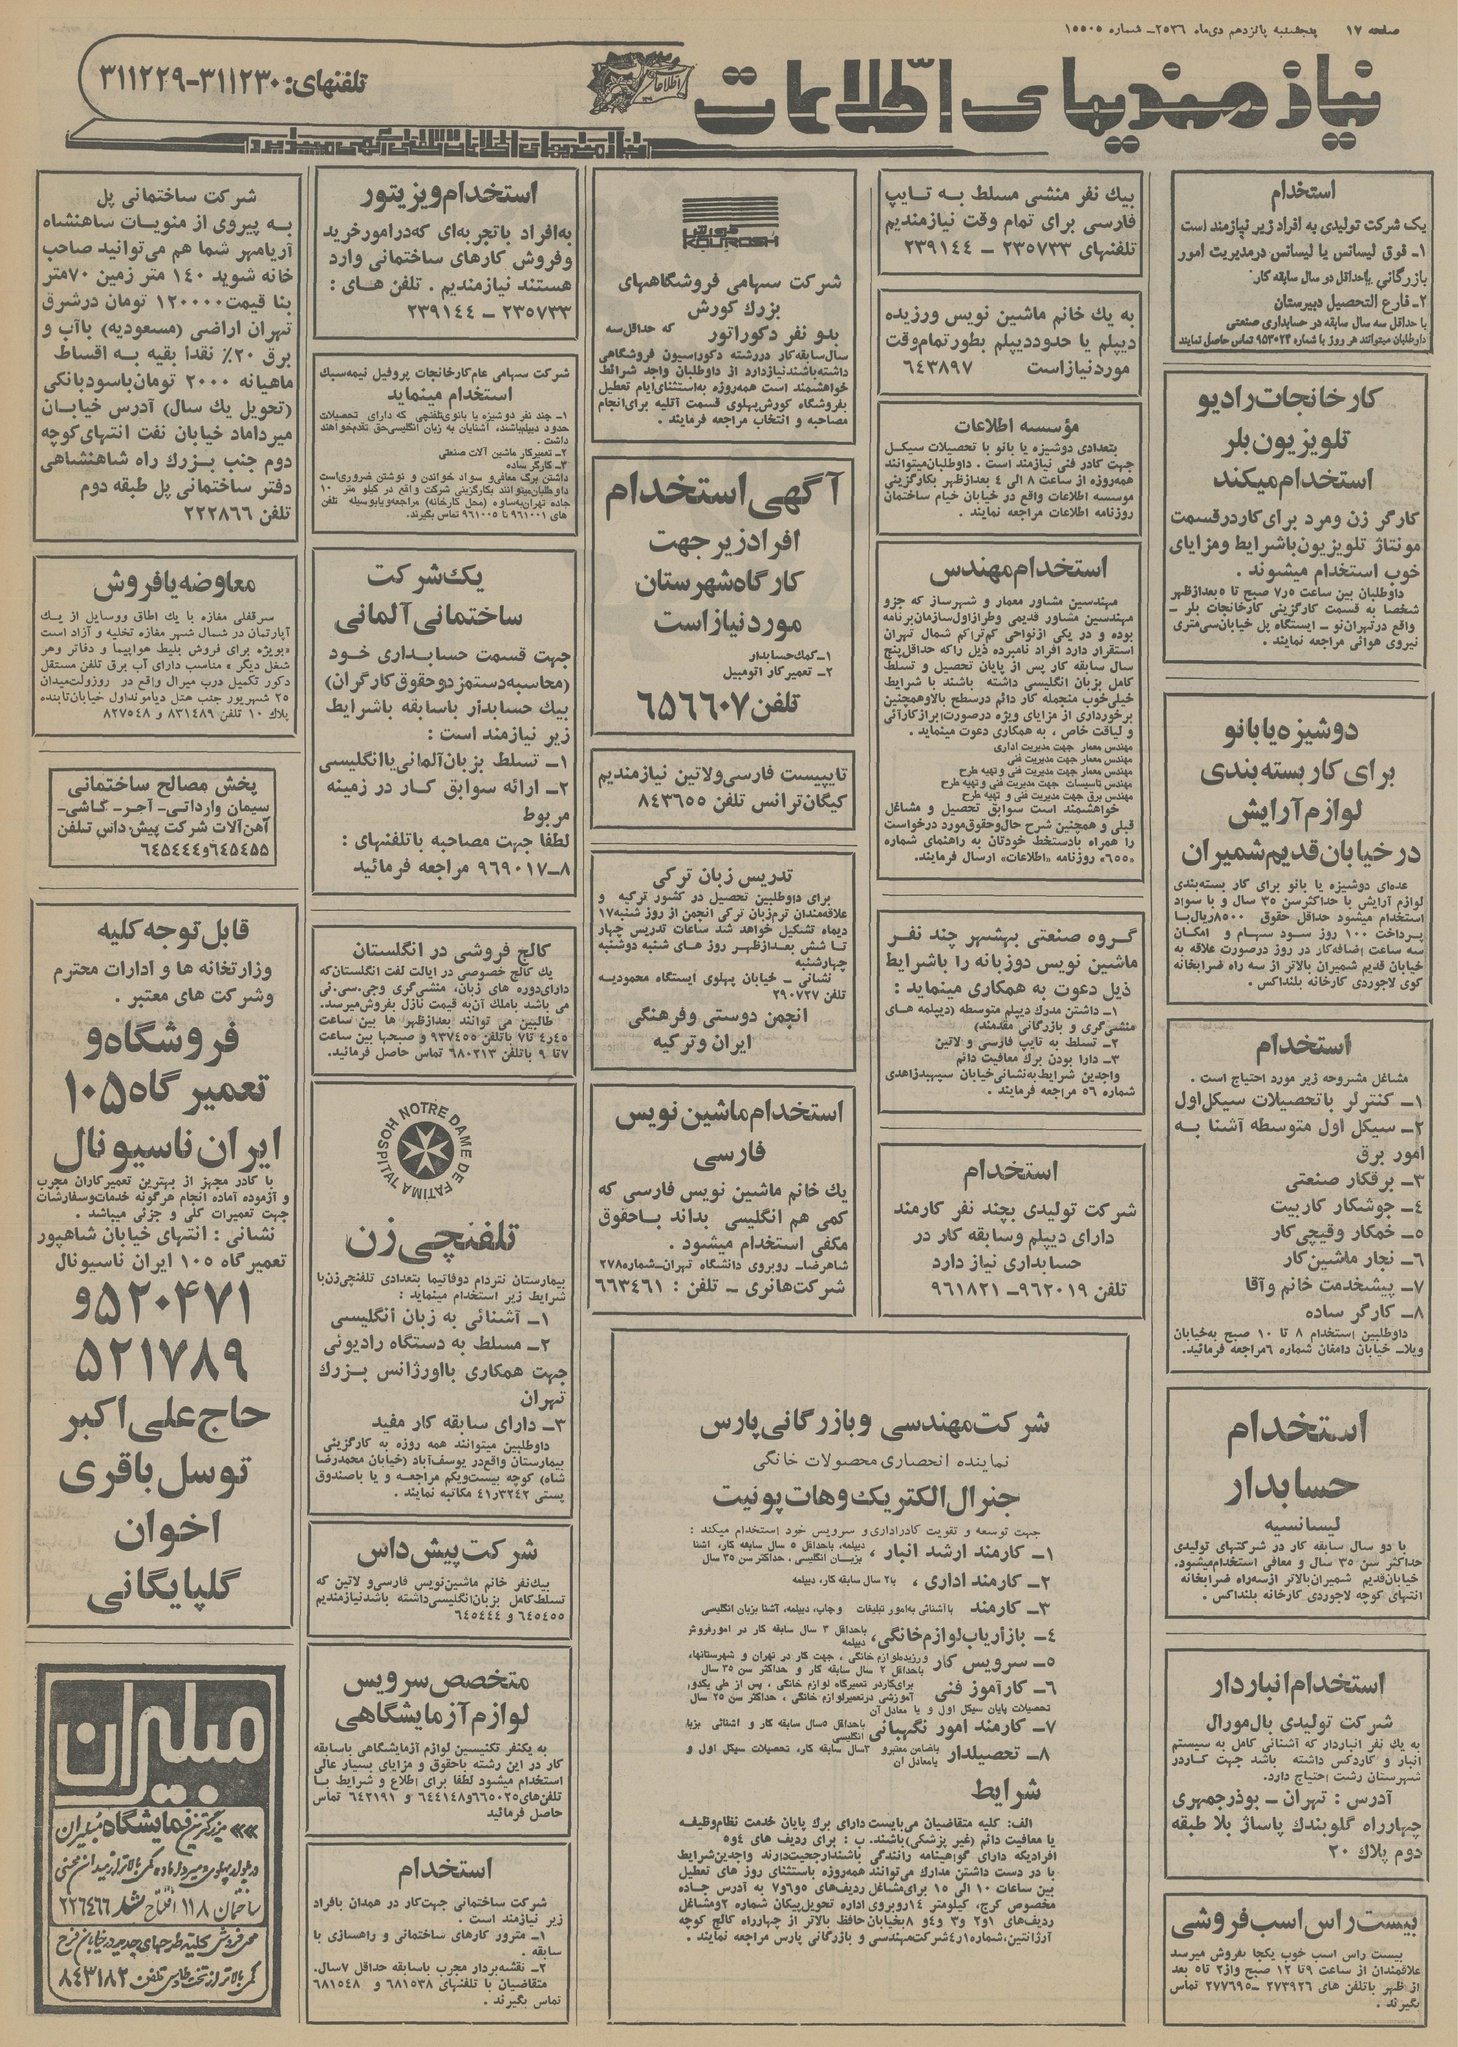 صفحه ۱۷ پنجشنبه پانزدهم دی‌ماه ۲۵۳۶ـ شماره ۱۵۵۰۵
نیازمندیهای اطلاعات
تلفنهای: ۳۱۱۲۳۰-۳۱۱۲۲۹
نیازمندیهای اطلاعات تلفنی آگهی میپذیرد
استخدام
یک شرکت تولیدی به افراد زیر نیازمند است
۱ـ فوق لیسانس یا لیسانس درمدیریت امور
بازرگانی باحداقل دو سال سابقه کار.
۲ـ فارغ التحصیل دبیرستان
با حداقل سه سال سابقه در حسابداری صنعتی
داوطلبان میتوانند هر روز با شماره ۹۵۳۰۲۴ تماس حاصل نمایند
کارخانجات رادیو
تلویزیون بلر
استخدام میکند
کارگر زن ومرد برای کار درقسمت
مونتاژ تلویزیون باشرایط ومزایای
خوب استخدام میشوند .
داوطلبان بین ساعت ۷٫۵ صبح تا ۵ بعدازظهر
شخصا به قسمت کارگزینی کارخانجات بلر ـ
واقع درتهران‌نو ـ ایستگاه پل خیابان‌سی‌متری
نیروی هوائی مراجعه نمایند .
دوشیزه یا بانو
برای کار بسته بندی
لوازم آرایش
در خیابان قدیم شمیران
عده‌ای دوشیزه یا بانو برای کار بسته‌بندی
لوازم آرایش با حداکثرسن ۳۵ سال و با سواد
استخدام میشود حداقل حقوق ۸۵۰۰ریال‌با
پرداخت ۱۰۰ روز سود سهام و امکان
سه ساعت اضافه‌کار در روز درصورت علاقه به
خیابان قدیم شمیران بالاتر از سه راه ضرابخانه
کوی لاجوردی کارخانه بلنداکس .
استخدام
مشاغل مشروحه زیر مورد احتیاج است .
۱ـ کنترلر باتحصیلات سیکل‌اول
۲ـ سیکل اول متوسطه آشنا به
امور برق
۳ـ برقکار صنعتی
۴ـ جوشکار کاربیت
۵ـ خمکار وقیچی‌کار
۶ـ نجار ماشین‌کار
۷ـ پیشخدمت خانم وآقا
۸ـ کارگر ساده
داوطلبین استخدام ۸ تا ۱۰ صبح به‌خیابان
ویلاـ خیابان دامغان شماره ۶مراجعه فرمائید.
استخدام
حسابدار
لیسانسیه
با دو سال سابقه کار در شرکتهای تولیدی
حداکثر سن ۳۵ سال و معافی استخدام‌میشود.
خیابان‌قدیم شمیران‌بالاتر ازسه‌راه ضرابخانه
انتهای کوچه لاجوردی کارخانه بلنداکس .
استخدام انباردار
شرکت تولیدی بال‌مورال
به یک نفر انباردار که آشنائی کامل به سیستم
انبار و کاردکس داشته باشد جهت کاردر
شهرستان رشت احتیاج دارد.
آدرس : تهران ـ بوذرجمهری
چهارراه گلوبندک پاساژ بلا طبقه
دوم پلاک ۲۰
بیست راس اسب فروشی
بیست راس اسب خوب یکجا بفروش میرسد
علاقمندان از ساعت ۹تا ۱۲ صبح واز۲ تا۵ بعد
از ظهر باتلفن های ۲۷۳۹۲۶ ـ۲۷۷۶۹۵ تماس
بگیرند .
بیک نفر منشی مسلط به تایپ
فارسی برای تمام وقت نیازمندیم
تلفنهای ۲۳۵۷۳۳ ـ ۲۳۹۱۴۴
به یک خانم ماشین نویس ورزیده
دیپلم یا حدوددیپلم بطورتمام‌وقت
موردنیازاست ۶۴۳۸۹۷
مؤسسه اطلاعات
بتعدادی دوشیزه یا بانو با تحصیلات سیکل
جهت کادر فنی نیازمند است . داوطلبان‌میتوانند
همه‌روزه از ساعت ۸ الی ۴ بعدازظهر بکارگزینی
موسسه اطلاعات واقع در خیابان خیام ساختمان
روزنامه اطلاعات مراجعه نمایند .
استخدام مهندس
مهندسین مشاور معمار و شهرساز که جزو
مهندسین مشاور قدیمی وطرازاول‌سازمان‌برنامه
بوده و در یکی ازنواحی کم‌تراکم شمال تهران
استقرار دارد افراد نامبرده ذیل راکه حداقل‌پنج
سال سابقه کار پس از پایان تحصیل و تسلط
کامل بزبان انگلیسی داشته باشند با شرایط
خیلی‌خوب منجمله کار دائم درسطح بالاوهمچنین
برخورداری از مزایای ویژه درصورت‌ابرازکارآئی
و لیاقت خاص ، به همکاری دعوت مینماید .
مهندس معمار جهت مدیریت اداری
مهندس معمار جهت مدیریت فنی
مهندس معمار جهت مدیریت فنی و تهیه طرح
مهندس تاسیسات جهت مدیریت فنی و تهیه طرح
مهندس برق جهت مدیریت فنی و تهیه طرح
خواهشمند است سوابق تحصیل و مشاغل
قبلی و همچنین شرح حال‌وحقوق‌مورد درخواست
را همراه بادستخط خودتان به راهنمای شماره
«۶۵۵» روزنامه «اطلاعات» ارسال فرمایند.
گروه صنعتی بهشهر چند نفر
ماشین نویس دوزبانه را باشرایط
ذیل دعوت به همکاری مینماید :
۱ـ داشتن مدرک دیپلم متوسطه (دیپلمه های
منشی‌گری و بازرگانی مقدمند)
۲ـ تسلط به تایپ فارسی و لاتین
۳ـ دارا بودن برگ معافیت دائم
واجدین شرایط‌به‌نشانی‌خیابان سپهبدزاهدی
شماره ۵۶ مراجعه فرمایند .
استخدام
شرکت تولیدی بچند نفر کارمند
دارای دیپلم وسابقه کار در
حسابداری نیاز دارد
تلفن ۹۶۲۰۱۹ـ ۹۶۱۸۲۱
کورش
KOUROSH
شرکت سهامی فروشگاههای
بزرگ کورش
بدو نفر دکوراتور که حداقل‌سه
سال‌سابقه‌کار دررشته دکوراسیون فروشگاهی
داشته‌باشندنیازدارد از داوطلبان واجد شرائط
خواهشمند است همه‌روزه به‌استثنای‌ایام تعطیل
بفروشگاه کورش‌پهلوی قسمت آتلیه برای‌انجام
مصاحبه و انتخاب مراجعه فرمایند .
آگهی استخدام
افراد زیر جهت
کارگاه شهرستان
مورد نیاز است
۱ـکمک‌حسابدار
۲ـ تعمیر کار اتومبیل
تلفن ۶۵۶۶۰۷
تایپیست فارسی‌ولاتین نیازمندیم
کیگان‌ترانس تلفن ۸۴۳۶۵۵
تدریس زبان ترکی
برای داوطلبین تحصیل در کشور ترکیه و
علاقه‌مندان ترم‌زبان ترکی انجمن از روز شنبه۱۷
دیماه تشکیل خواهد شد ساعات تدریس چهار
تا شش بعدازظهر روز های شنبه دوشنبه
چهارشنبه
نشانی ـ خیابان پهلوی ایستگاه محمودیه ـ
تلفن ۲۹۰۷۲۷
انجمن دوستی وفرهنگی
ایران وترکیه
استخدام ماشین نویس
فارسی
یک خانم ماشین نویس فارسی که
کمی هم انگلیسی بداند باحقوق
مکفی استخدام میشود .
شاهرضاـ روبروی دانشگاه تهران‌ـشماره۲۷۸
شرکت‌هانری ـ تلفن : ۶۶۳۴۶۱
شرکت مهندسی و بازرگانی پارس
نماینده انحصاری محصولات خانگی
جنرال الکتریک وهات پونیت
جهت توسعه و تقویت کادراداری‌و سرویس خود استخدام میکند :
۱ـ کارمند ارشد انبار ، دیپلمه، باحداقل ۵ سال سابقه کار، آشنا
بزبان انگلیسی ، حداکثر سن ۳۵ سال
۲ـ کارمند اداری ، با۲ سال سابقه کار، دیپلمه
۳ـ کارمند باآشنائی به‌امور تبلیغات وچاپ، دیپلمه، آشنا بزبان انگلیسی
۴ـ بازاریاب‌لوازم‌خانگی، باحداقل ۳ سال سابقه کار در امورفروش
دیپلمه
۵ـ سرویس کار ورزیده‌لوازم خانگی ، جهت کار در تهران و شهرستانها،
باحداقل ۲ سال سابقه کار و حداکثر سن ۳۵ سال
۶ـ کارآموز فنی برای‌کاردر تعمیرگاه لوازم خانگی ، پس از طی یکدوره
آموزشی درتعمیرلوازم خانگی ، حداکثر سن ۲۵ سال
تحصیلات پایان سیکل اول و یا معادل آن
۷ـ کارمند امور نگهبانی باحداقل ۵سال سابقه کار و آشنائی
انگلیسی
۸ـ تحصیلدار باضامن معتبرو ۳سال سابقه کار، تحصیلات سیکل اول و
یامعادل آن
شرایط
الف: کلیه متقاضیان می‌بایست دارای برگ پایان خدمت نظام‌وظیفه
یا معافیت دائم (غیر پزشکی)باشند. ب : برای ردیف های ۴و۵
افرادیکه دارای گواهینامه رانندگی باشندارجحیت‌دارند واجدین‌شرایط
با در دست داشتن مدارک می‌توانند همه‌روزه باستثنای روز های تعطیل
بین ساعات ۱۰ الی ۱۵ برای‌مشاغل ردیف‌های ۵و۶و۷ به آدرس جاده
مخصوص کرج، کیلومتر ۱۴روبروی اداره تحویل‌پیکان شماره ۲ومشاغل
ردیف‌های ۱و۲ و۳ و۴و ۸بخیابان حافظ بالاتر از چهارراه کالج کوچه
آرژانتین،شماره۴٫۱شرکت‌مهندسی و بازرگانی پارس مراجعه نمایند .
استخدام ویزیتور
به‌افراد باتجربه‌ای که‌درامورخرید
وفروش کارهای ساختمانی وارد
هستند نیازمندیم . تلفن های :
۲۳۵۷۳۳ ـ ۲۳۹۱۴۴
شرکت سهامی عام‌کارخانجات پروفیل نیمه‌سبک
استخدام مینماید
۱ـ چند نفر دوشیزه یا بانوی‌تلفنچی که دارای تحصیلات
حدود دیپلم‌باشند، آشنایان به زبان انگلیسی‌حق تقدم‌خواهند
داشت .
۲ـ تعمیرکار ماشین آلات صنعتی
۳ـ کارگر ساده
داشتن برگ معافی‌و سواد خواندن و نوشتن ضروری‌است
داوطلبان‌میتوانند بکارگزینی شرکت واقع در کیلو متر ۱۰
جاده تهران‌به‌ساوه (محل کارخانه) مراجعه‌ویابوسیله تلفن
های ۹۶۱۰۰۱ تا ۹۶۱۰۰۵ تماس بگیرند.
یک شرکت
ساختمانی آلمانی
جهت قسمت حسابداری خود
(محاسبه‌دستمزدوحقوق‌کارگران)
بیک حسابدار باسابقه باشرایط
زیر نیازمند است :
۱ـ تسلط بزبان‌آلمانی‌یاانگلیسی
۲ـ ارائه سوابق کار در زمینه
مربوط
لطفا جهت مصاحبه باتلفنهای :
۸ـ۹۶۹۰۱۷ مراجعه فرمائید
کالج فروشی در انگلستان
یک کالج خصوصی در ایالت لفت انگلستان‌که
دارای‌دوره های زبان، منشی‌گری وجی.سی.ئی
می باشد باملک آن‌به قیمت نازل بفروش‌میرسد.
طالبین می توانند بعدازظهر ها بین ساعت
۴٫۴۵ تا۷ باتلفن ۹۳۷۴۵۵ و صبحها بین ساعت
۷تا ۹ باتلفن ۶۸۰۲۱۳ تماس حاصل فرمائید.
HOSPITAL NOTRE DAME DE FATIMA
تلفنچی زن
بیمارستان نتردام دوفاتیما بتعدادی تلفنچی‌زن‌با
شرایط زیر استخدام مینماید :
۱ـ آشنائی به زبان انگلیسی
۲ـ مسلط به دستگاه رادیوئی
جهت همکاری بااورژانس بزرگ
تهران
۳ـ دارای سابقه کار مفید
داوطلبین میتوانند همه روزه به کارگزینی
بیمارستان واقع‌در یوسف‌آباد (خیابان محمدرضا
شاه) کوچه بیست‌ویکم مراجعه و یا باصندوق
پستی ۴۱٫۳۲۴۲ مکاتبه نمایند .
شرکت پیش داس
بیک‌نفر خانم ماشین‌نویس فارسی‌و لاتین که
تسلط‌کامل بزبان‌انگلیسی‌داشته باشدنیازمندیم
۶۴۵۴۵۵ و ۶۴۵۴۴۴
متخصص سرویس
لوازم آزمایشگاهی
به یکنفر تکنیسین لوازم آزمایشگاهی باسابقه
کار در این رشته باحقوق و مزایای بسیار عالی
استخدام میشود لطفا برای اطلاع و شرایط با
تلفن‌های۶۶۵۰۲۵و۶۴۴۱۴۸ و ۶۴۲۱۹۱ تماس
حاصل فرمائید
استخدام
شرکت ساختمانی جهت‌کار در همدان بافراد
زیر نیازمند است .
۱ـ مترور کارهای ساختمانی و راهسازی با
سابقه .
۲ـ نقشه‌بردار مجرب باسابقه حداقل ۷سال.
متقاضیان با تلفنهای ۶۸۱۵۳۸ و ۶۸۱۵۴۸
تماس بگیرند .
شرکت ساختمانی پل
به پیروی از منویات شاهنشاه
آریامهر شما هم می‌توانید صاحب
خانه شوید ۱۴۰ متر زمین ۷۰متر
بنا قیمت۱۲۰۰۰۰ تومان درشرق
تهران اراضی (مسعودیه) باآب و
برق ۲۰٪ نقدا بقیه به اقساط
ماهیانه ۲۰۰۰ تومان‌باسودبانکی
(تحویل یک سال) آدرس خیابان
میرداماد خیابان نفت انتهای‌کوچه
دوم جنب بزرگ راه شاهنشاهی
دفتر ساختمانی پل طبقه دوم
تلفن ۲۲۲۸۶۶
معاوضه یا فروش
سرقفلی مغازه با یک اطاق ووسایل از یک
آپارتمان در شمال شهر مغازه تخلیه و آزاد است
«بویژه برای فروش بلیط هواپیما و دفاتر وهر
شغل دیگر » مناسب دارای آب برق تلفن مستقل
دکور تکمیل درب میرال واقع در روزولت‌میدان
۲۵ شهریور جنب هتل دیاموندالول خیابان‌تابنده
پلاک ۱۰ تلفن ۸۳۱۴۸۹ و ۸۲۷۵۴۸
پخش مصالح ساختمانی
سیمان وارداتی- آجر- کاشی-
آهن‌آلات شرکت پیش‌داس تلفن
۶۴۵۴۵۵و۶۴۵۴۴۴
قابل توجه کلیه
وزارتخانه ها و ادارات محترم
وشرکت های معتبر .
فروشگاه و
تعمیر گاه ۱۰۵
ایران ناسیونال
با کادر مجهز از بهترین تعمیرکاران مجرب
و آزموده آماده انجام هرگونه خدمات‌وسفارشات
جهت تعمیرات کلی و جزئی میباشد .
نشانی : انتهای خیابان شاهپور
تعمیرگاه ۱۰۵ ایران ناسیونال
۵۲۰۴۷۱ و
۵۲۱۷۸۹
حاج علی اکبر
توسل باقری
اخوان
گلپایگانی
مبلیران
«« بزرگترین نمایشگاه مبلیران
ساختمان ۱۱۸ افتتاح شد ۲۲۶۴۶۶
محل فروش کلیه طرحهای جدید در خیابان فرح
کمی بالاتر از تخت طاوس تلفن ۸۴۳۱۸۲